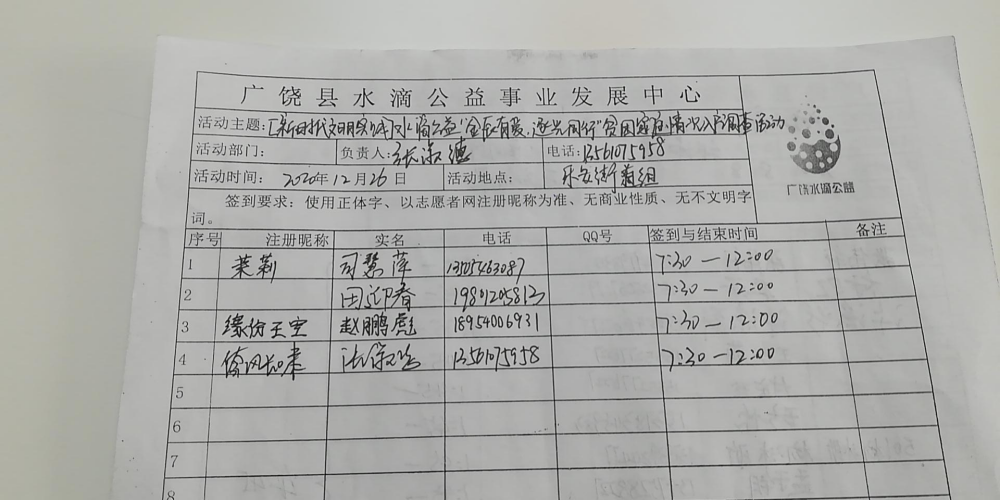 广饶县水滴公益事业发展中心
活动主题:[新时代文明实践]水滴公益"全民有爱,逐共同行"贫困家庭情况入户调查活动
活动部门: 负责人:张淑德 电话:13561075958
活动时间: 2020年12月26日 活动地点: 乐安街前组
广饶水滴公益
签到要求:使用正体字、以志愿者网注册昵称为准、无商业性质、无不文明字
词。
序号 注册昵称 实名 电话 QQ号 签到与结束时间 备注
1 茉莉 司慧萍 13105463087 7:30—12:00
2 田迎春 7:30—12:00
3 缘份天空 赵鹏彪 18954006931 7:30—12:00
4 13561075958 7:30—12:00
5
6
7
8